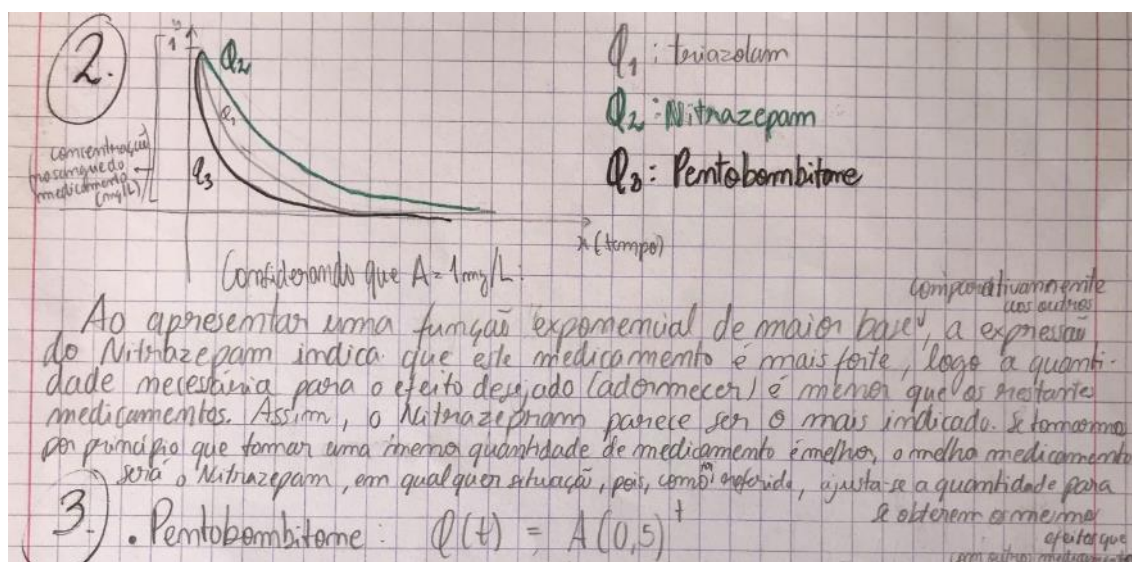 2.
y
1
Q2
Q1
Q3
concentração
no sangue do
medicamento
(mg/L)
x (tempo)
Q1 : triazolam
Q2 : Nitrazepam
Q3 : Pentobombitone
Considerando que A = 1mg/L :
comparativamente
aos outros
Ao apresentar uma função exponencial de maior base, a expressão
do Nitrazepam indica que este medicamento é mais forte, logo a quanti-
dade necessária para o efeito desejado (adormecer) é menor que os restantes
medicamentos. Assim, o Nitrazepram parece ser o mais indicado. Se tomarmos
por princípio que tomar uma menor quantidade de medicamento é melhor, o melhor medicamento
será o Nitrazepam, em qualquer situação, pois, como foi referido, ajusta-se a quantidade para
se obterem os mesmos
efeitos que
com outros medicamentos
3.
• Pentobombitone : Q(t) = A(0,5)^t